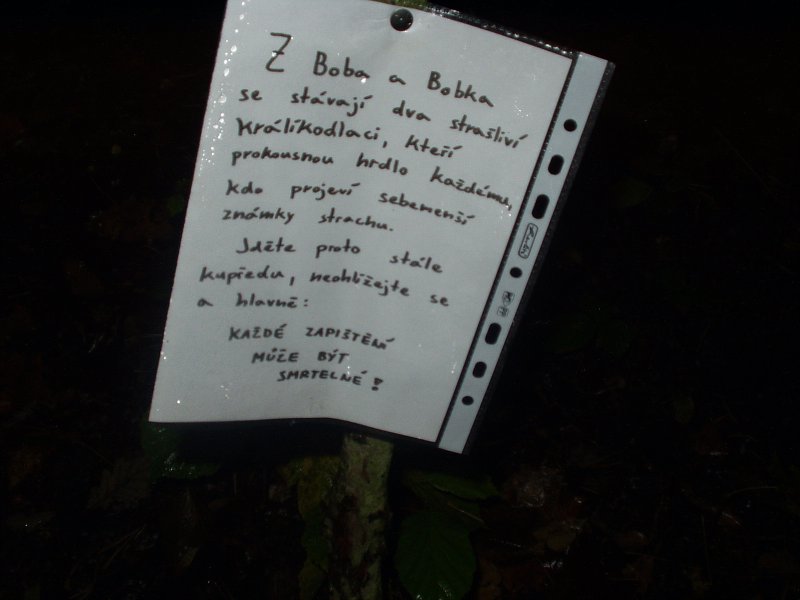 Z Boba a Bobka
se stávají dva strašliví
králíkodlaci, kteří
prokousnou hrdlo každému,
kdo projeví sebemenší
známky strachu.
Jděte proto stále
kupředu, neohlížejte se
a hlavně:
KAŽDÉ ZAPIŠTĚNÍ
MŮŽE BÝT
SMRTELNÉ!